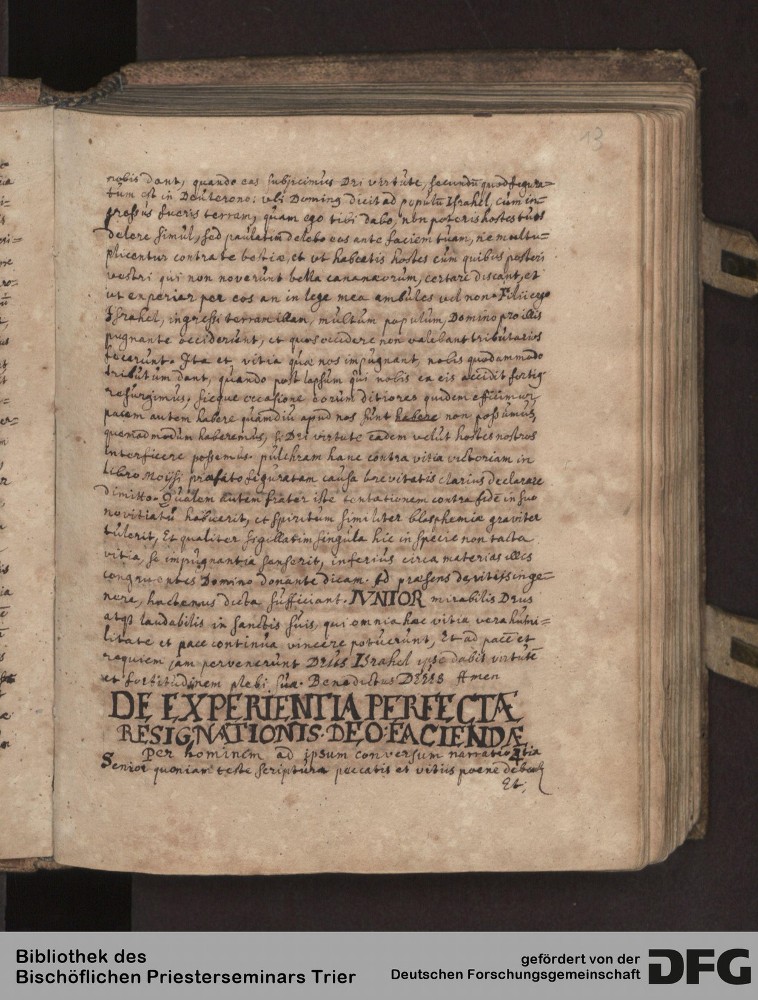 13
nobis dant, quando eas subjicimus Dei virtute, secundū quod figura=
tum est in Deuterono: ubi Doming dicit ad populū Israhel, cum in=
gressus fueris terram, quam ego tibi dabo, non poteris hostes tuos
delere simul, sed paulatim delebo eos ante faciem tuam, ne multi=
plicentur contra te bestiæ, et ut habeatis hostes cum quibus posteri
vestri qui non noverunt bella cananæorum, certare discant, et
ut experiar per eos an in lege mea ambules vel non. Filii ergo
Israhel, ingressi terram illam, multum populum, Domino pro illis
pugnante occiderunt, et quos occidere non valebant tributarios
fecerunt. Ita et vitia quæ nos impugnant, nobis quodammodo
tributum dant, quando post lapsum qui nobis ex eis accidit fortig
resurgimus. sicque occasione eorum ditiores quidem efficimur,
pacem autem habere quamdiu apud nos sunt habere non possumus,
quemadmodum haberemus, si Dei virtute eadem velut hostes nostros
interficere possemus. pulchram hanc contra vitia victoriam in
libro Moysi præfato figuratam causa brevitatis clarius declarare
dimitto. Qualem autem frater iste tentationem contra fidē in suo
novitiatu habuerit, et spiritum similiter blasphemiæ graviter
tulerit, Et qualiter sigillatim singula hic in specie non tacta
vitia, se impugnantia senserit, inferius circa materias illis
congruentes Domino donante dicam. sed præsens de vitiis in ge=
nere, hactenus dicta sufficiant. IVNIOR mirabilis Deus
atqs laudabilis in sanctis suis, qui omnia hæc vitia vera humi=
litate et pace continua vincere potuerunt, Et ad pacē et
requiem jam pervenerunt DEUS Israhel ipse dabit virtutē
et fortitudinem plebi suæ. Benedictus DEUS Amen
DE EXPERIENTIA PERFECTÆ
RESIGNATIONIS DEO FACIENDÆ
Per hominem ad ipsum conversum narratio 4tia
Senior quoniam teste scriptura peccatis et vitiis poena debet
Et,
Bibliothek des
Bischöflichen Priesterseminars Trier
gefördert von der
Deutschen Forschungsgemeinschaft
DFG